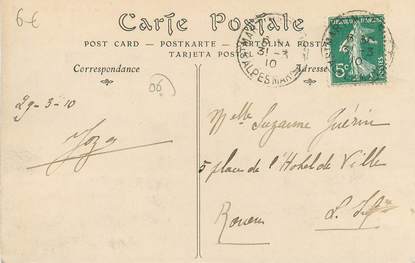 6-€
Carte Postale
POST CARD — POSTKARTE — CARTOLINA POSTALE
TARJETA POSTAL
Correspondance
Adresse
06
ALPES MAR
3
10
5c
29-3-10
Melle Suzanne Guérin
5 place de l'Hotel de Ville
Rouen